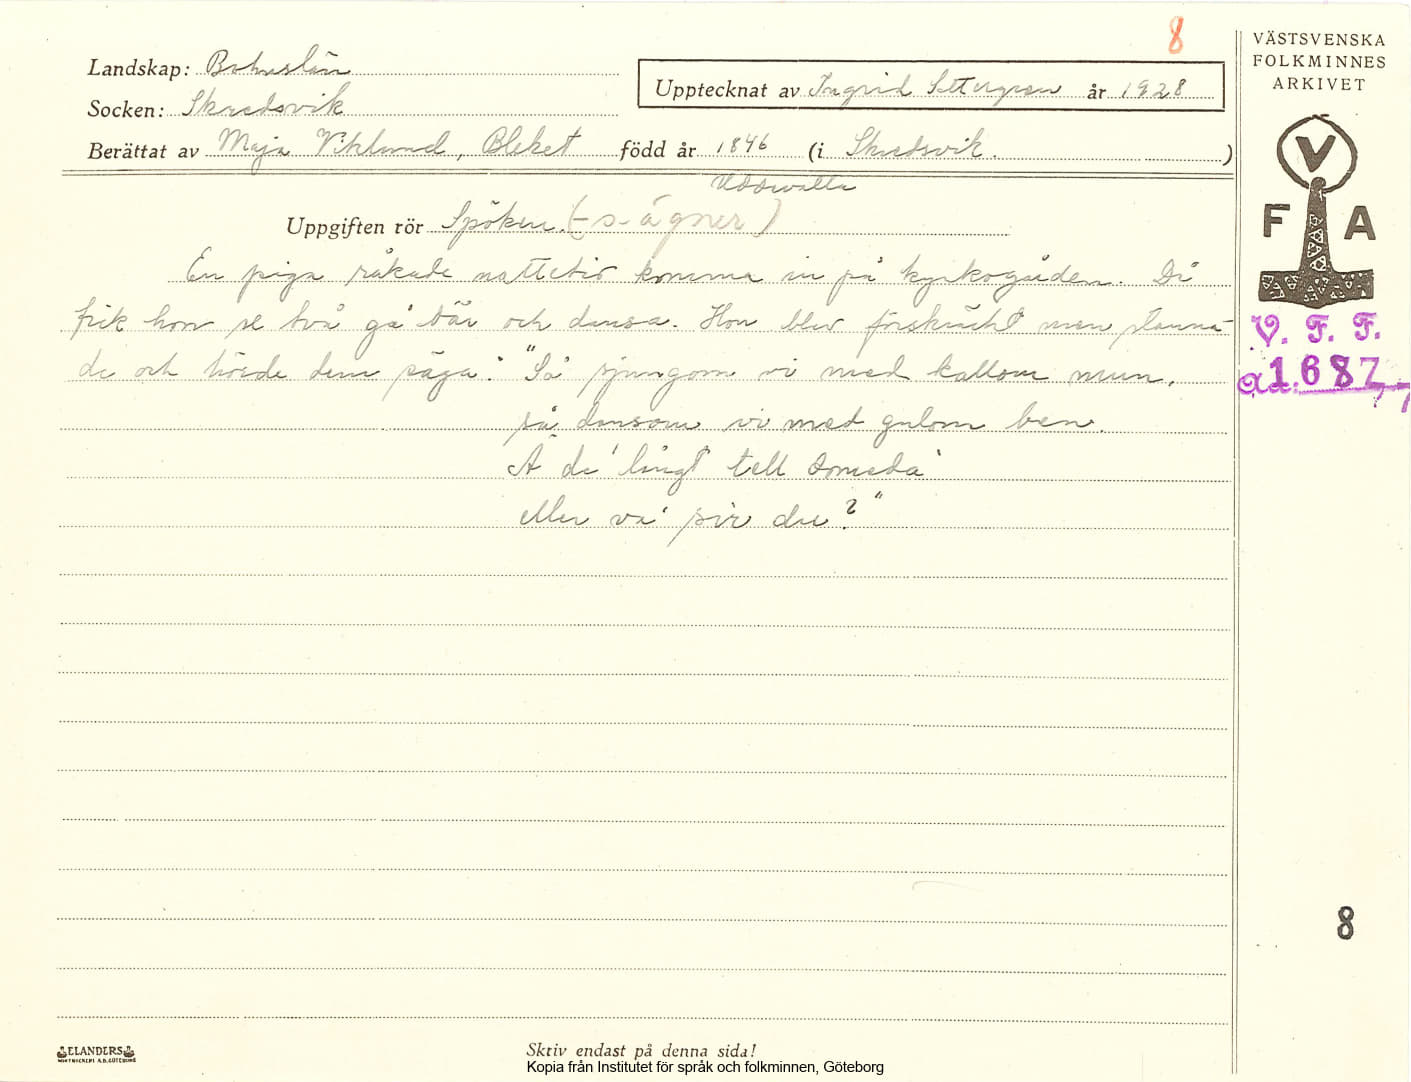 8
Landskap: Bohuslän
Socken: Skredsvik
Upptecknat av Ingrid Settergren år 1928
Berättat av Maja Viklund, Bleket född år 1846 (i Skredsvik.)
Uddevalla
Uppgiften rör Spöken. (-s-ägner)
En piga råkade nattetid komma in på kyrkogården. Då
fick hon se två gå där och dansa. Hon blev förskräckt men stanna-
de och hörde dem säga: "Så sjungom vi med kallom mun,
så dansom vi med gulom ben.
Ä de' långt tell domeda'
eller va' sir du?"
VÄSTSVENSKA
FOLKMINNES
ARKIVET
V
F A
V. F. F.
1687
8
ELANDERS
Skriv endast på denna sida!
Kopia från Institutet för språk och folkminnen, Göteborg